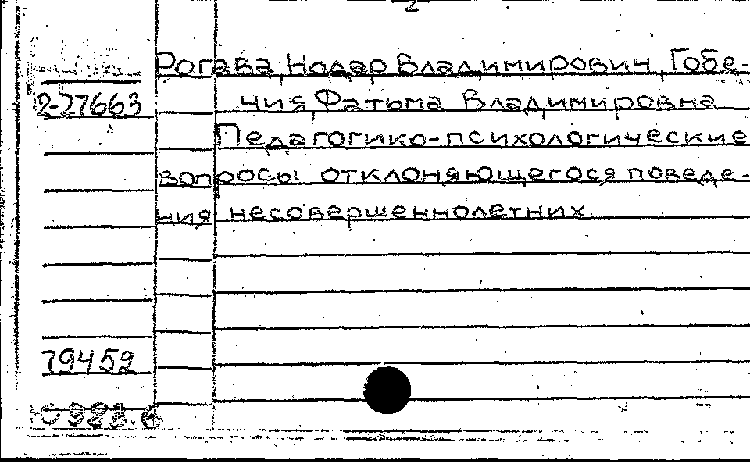 2
Рогава, Нодар Владимирович, Гобе-
2-27663 чия, Фатьма Владимировна
Педагогико-психологические
вопросы отклоняющегося поведе-
ния несовершеннолетних
79459